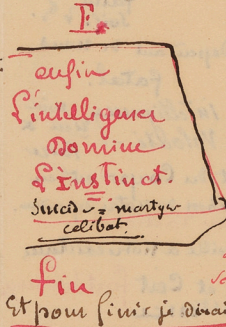 F.
enfin
L'intelligence
Domine
L'instinct.
Suicide = martyr
celibat.
fin
Et pour finir je dirai